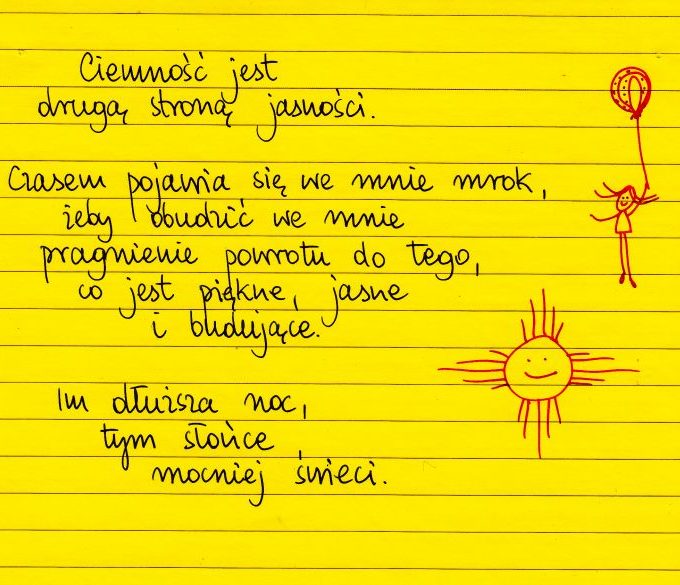 Ciemność jest
drugą stroną jasności.
Czasem pojawia się we mnie mrok,
żeby obudzić we mnie
pragnienie powrotu do tego,
co jest piękne, jasne
i budujące.
Im dłuższa noc,
tym słońce
mocniej świeci.